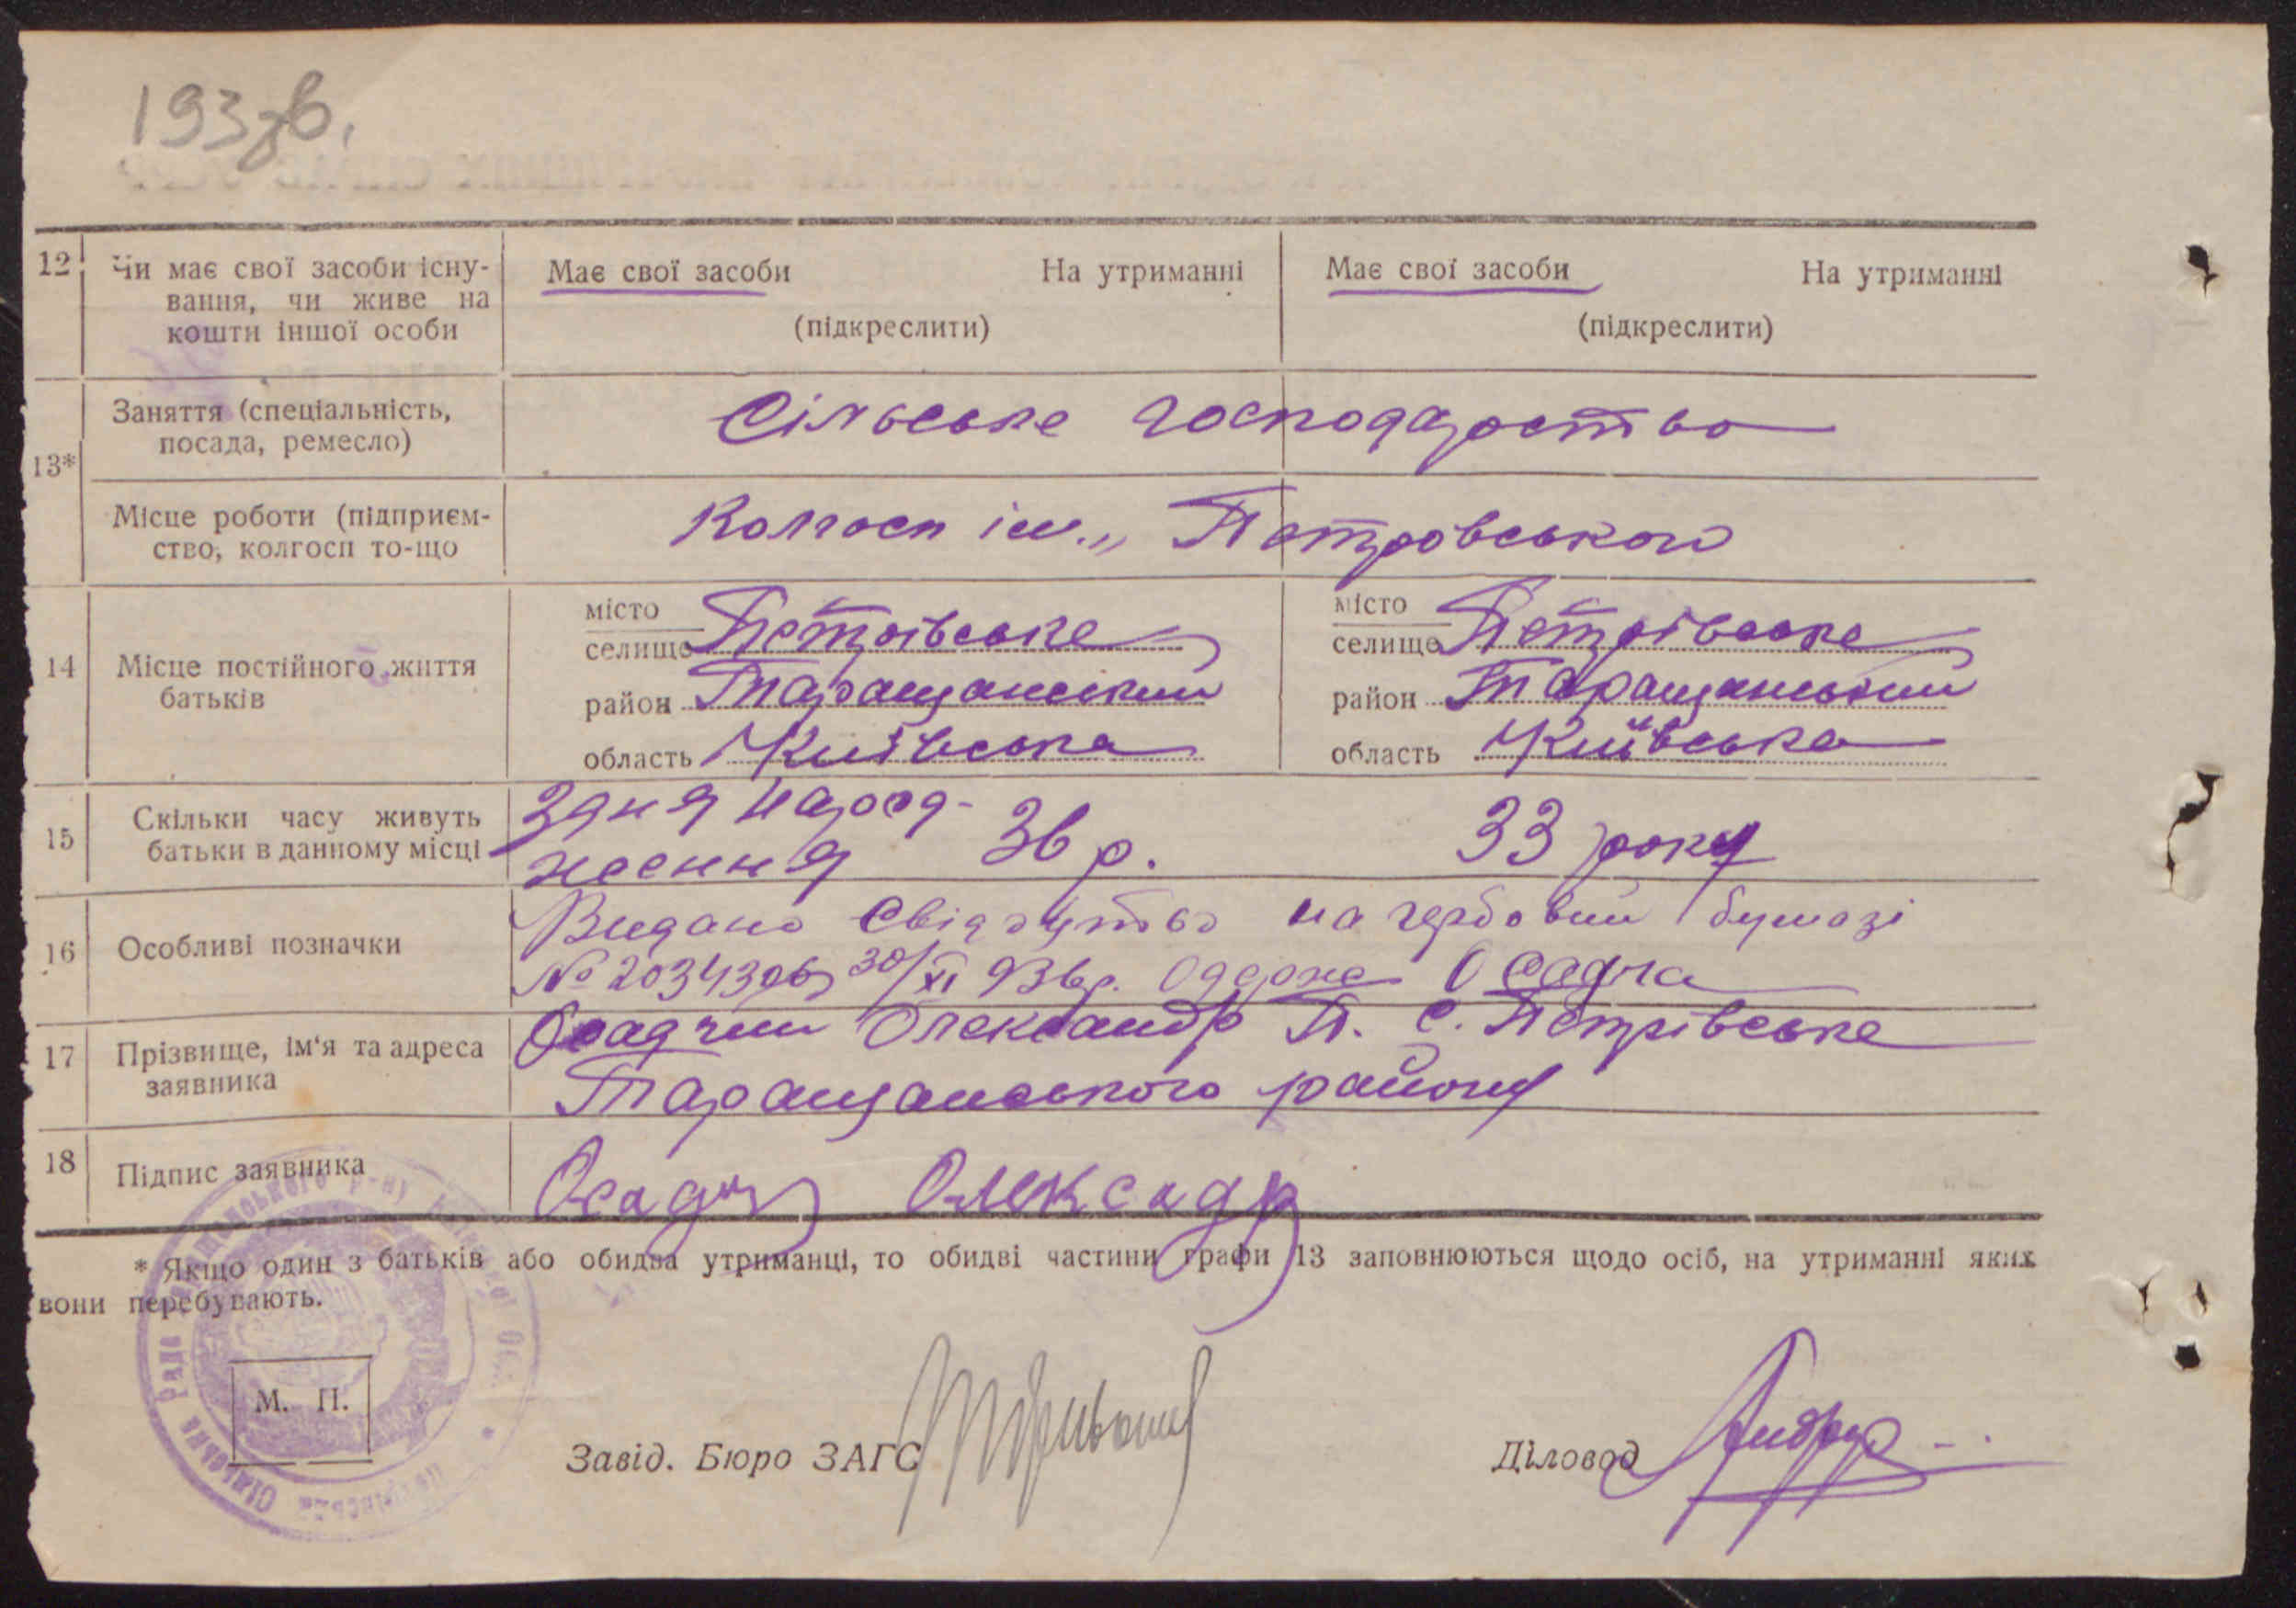 193зв.
12 Чи має свої засоби існу-
вання, чи живе на
кошти іншої особи
Має свої засоби На утриманні
(підкреслити)
Має свої засоби На утриманні
(підкреслити)
13*
Заняття (спеціальність,
посада, ремесло)
Сільське господарство
Місце роботи (підприєм-
ство, колгосп то-що
Колгосп ім. „ Петровського
14 Місце постійного життя
батьків
місто
селище Петрівське
район Таращанський
область Київська
місто
селище Петрівське
район Таращанський
область Київська
15 Скільки часу живуть
батьки в данному місці
З дня народ-
ження 36 р.
33 року
16 Особливі позначки
Видано свідоцтво на гербовій бумазі
№ 2034306 30/XI 936р. Одержа Осадча
17 Прізвище, ім'я та адреса
заявника
Осадчий Олександр П. С. Петрівське
Таращанського району
18 Підпис заявника
Осадчий Олексадр
* Якщо один з батьків або обидва утриманці, то обидві частини графи 13 заповнюються щодо осіб, на утриманні яких
вони перебувають.
М. П.
Завід. Бюро ЗАГС
Діловод